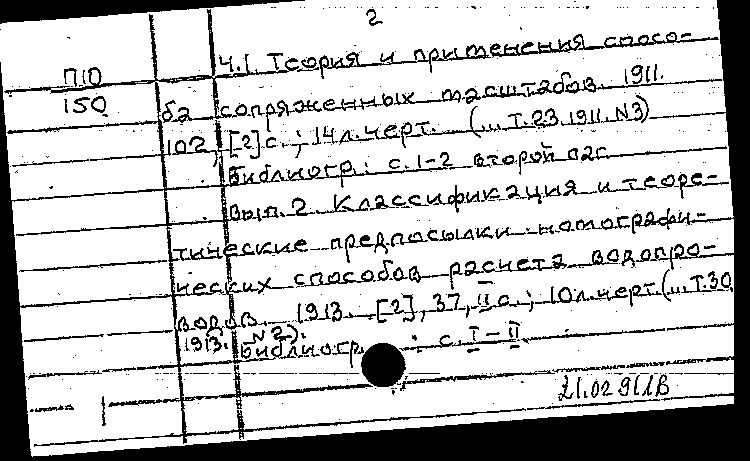 2
П10
150
Ч.1. Теория и применения спосо-
ба сопряженных масштабов. 1911.
102, [2] с.; 14 л. черт. (... Т.23. 1911. N3)
Библиогр.: с. 1-2 второй паг.
Вып. 2. Классификация и теоре-
тические предпосылки номографи-
ческих способов расчета водопро-
водов. 1913. [2], 37, II с.; 10 л. черт. (... Т.30
1913. N2).
Библиогр. : с. I - II
21.02.91